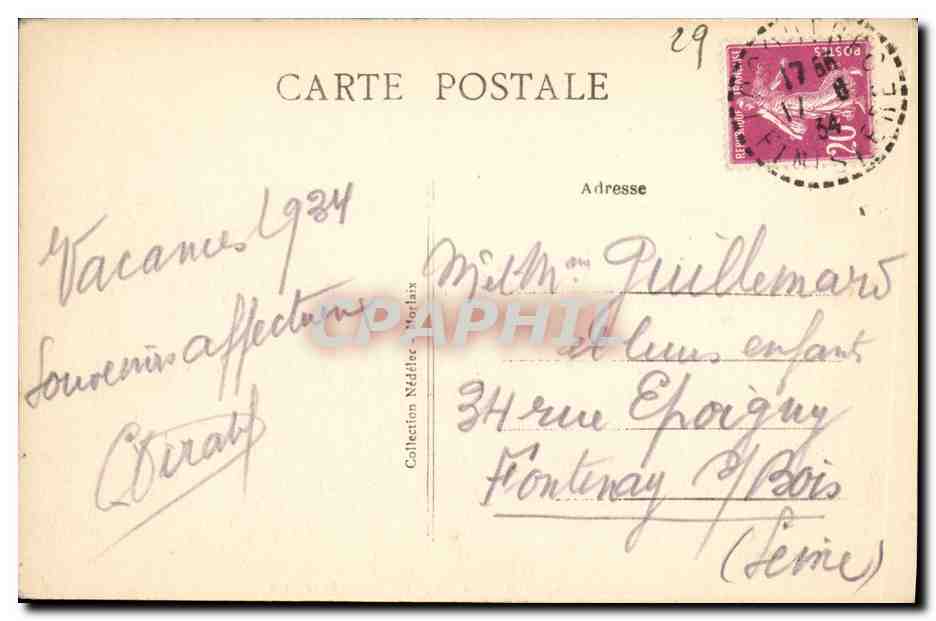 29
CARTE POSTALE
REPUBLIQUE FRANÇAISE
POSTES
20c
17
17 8
34
FINISTERE
Adresse
Vacances 1934
Souvenirs affectueux
Collection Nédélec - Morlaix
CPAPHIL
Mr et Mme Guillemard
et leurs enfants
34 rue Epoigny
Fontenay s/Bois
(Seine)